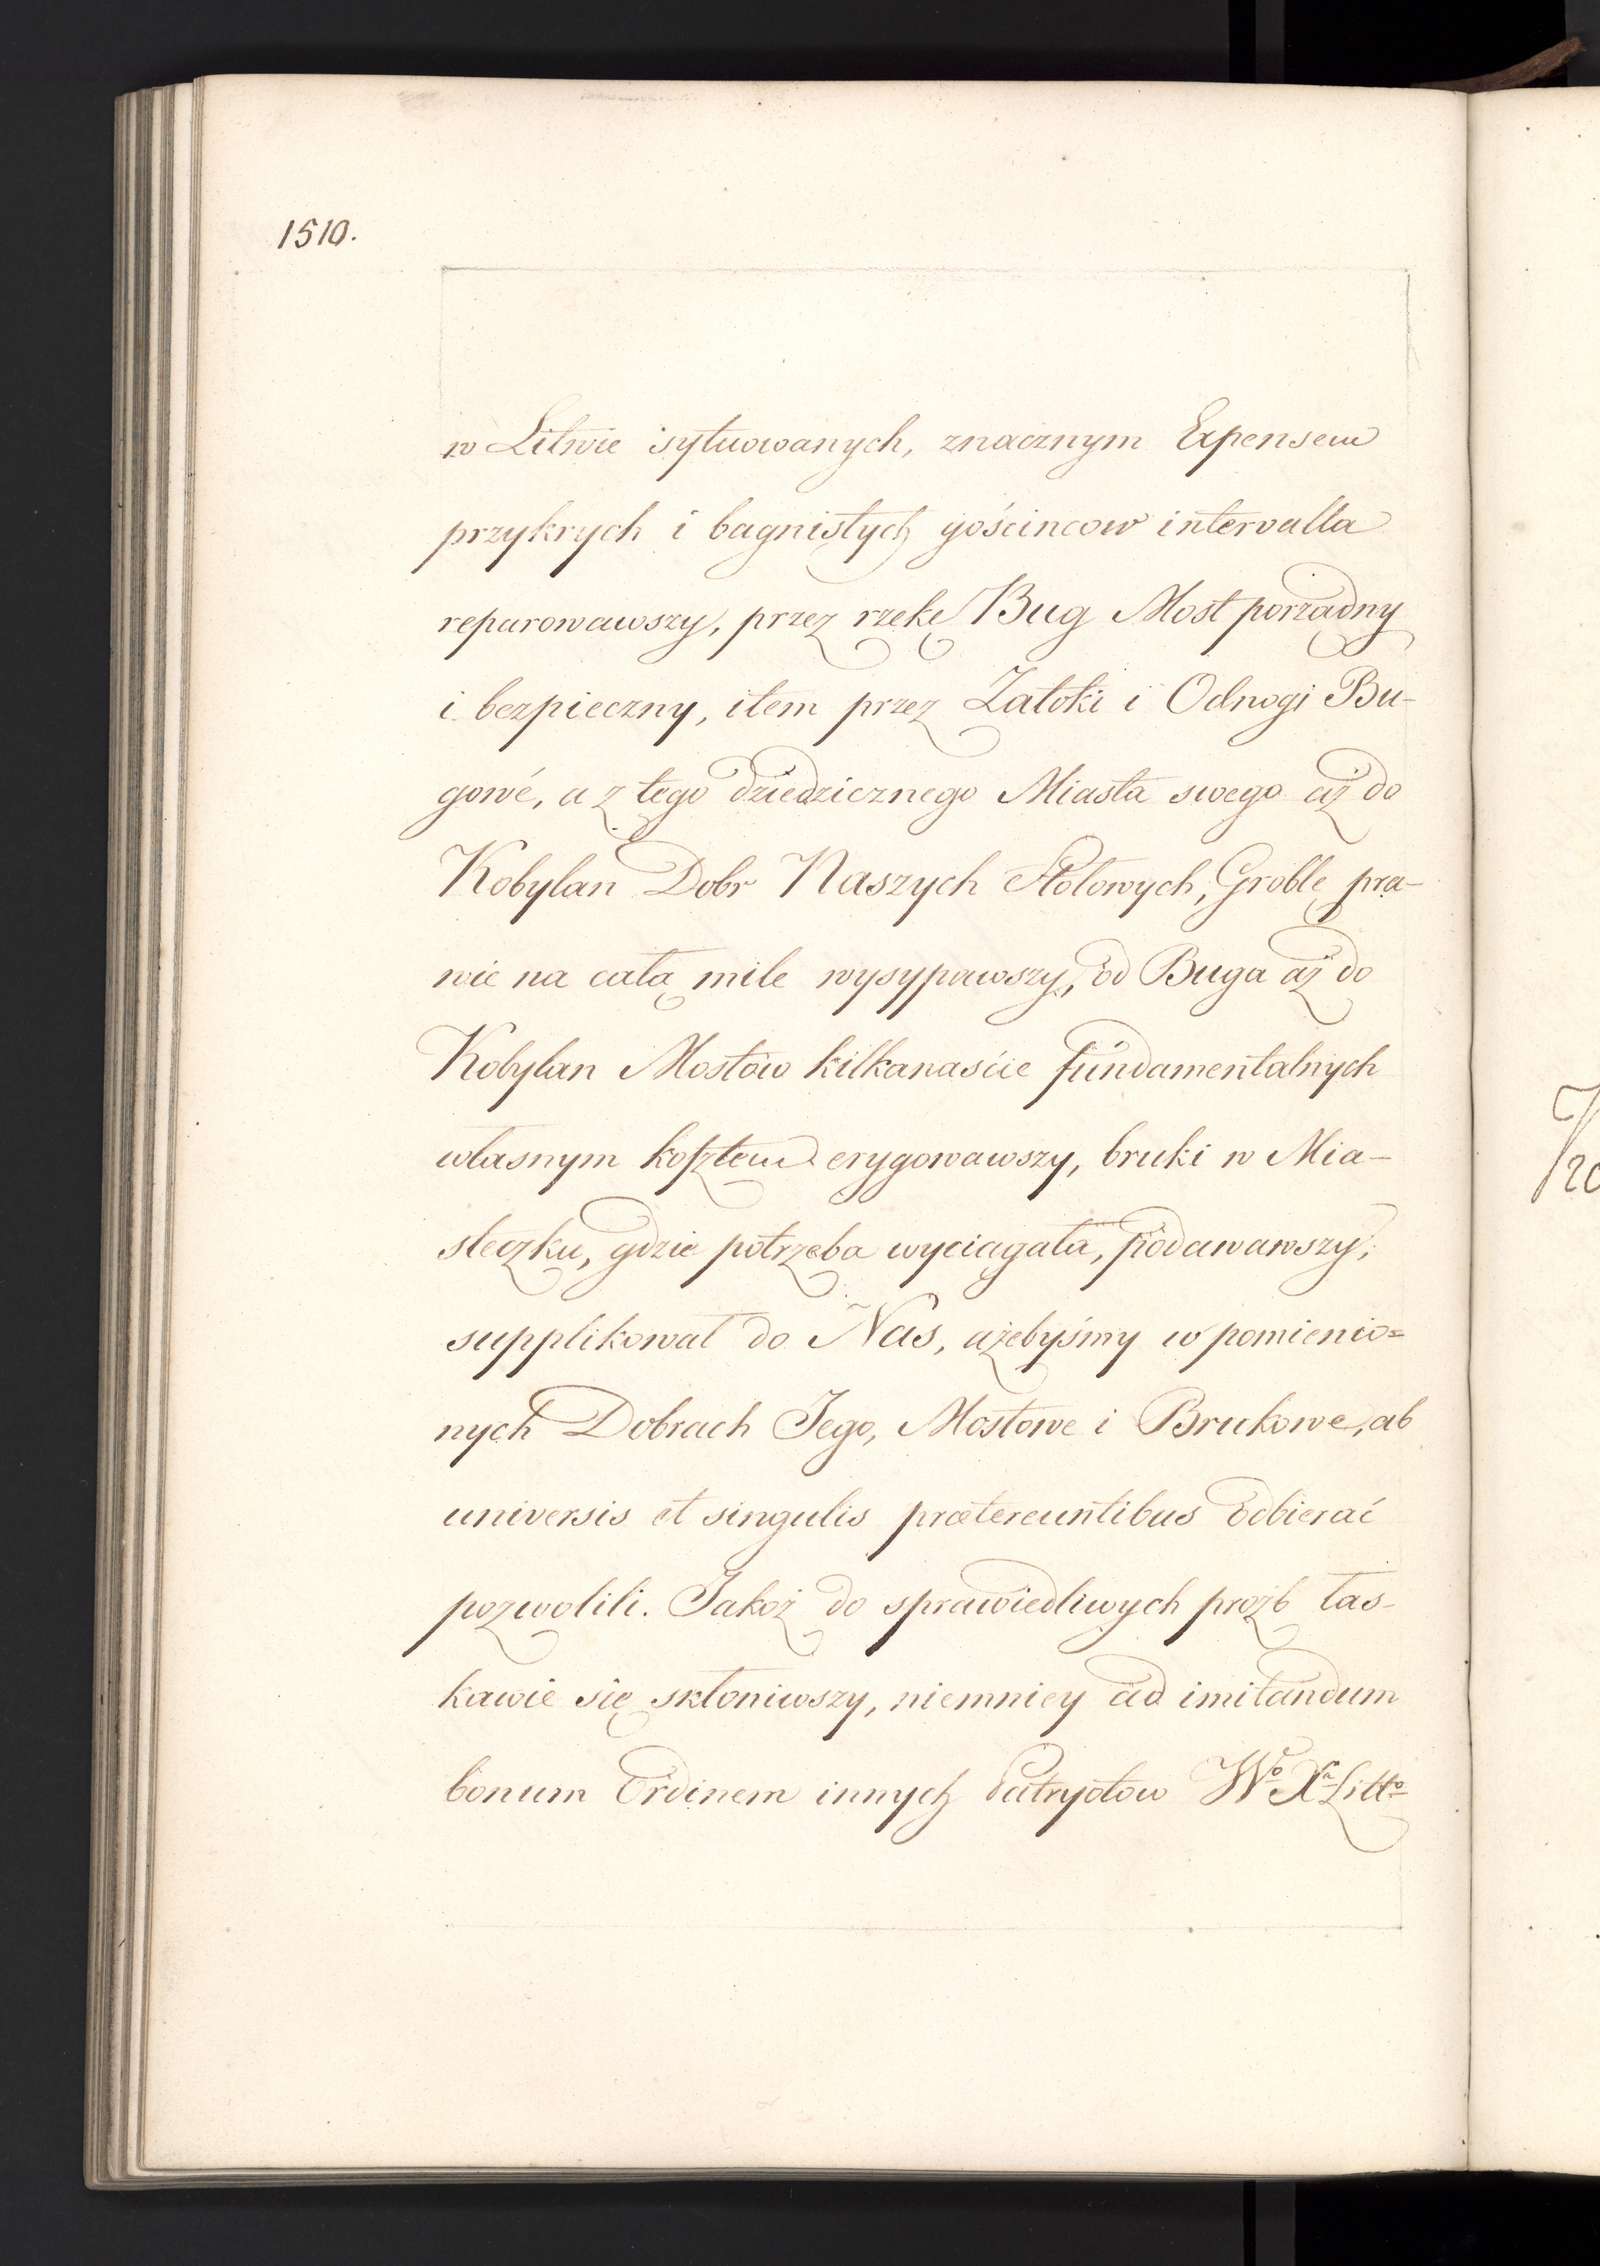 1510.
w Litwie sytuowanych, znacznym Expensem
przykrych i bagnistych gościncow intervalla
reparowawszy, przez rzekę Bug Most porządny
i bezpieczny, item przez Zatoki i Odnogi Bu-
gowé, a z tego dziedzicznego Miasta swego aż do
Kobylan Dobr Naszych Stołowych, Groblę pra-
wie na całą mile wysypawszy, od Buga aż do
Kobylan Mostów kilkanaście fundamentalnych
własnym kosztem erygowawszy, bruki w Mia-
steczku, gdzie potrzeba wyciągała, podawawszy,
supplikował do Nas, ażebyśmy w pomienio=
nych Dobrach Jego, Mostowe i Brukowe, ab
universis et singulis prætereuntibus odbierać
pozwolili. Jakoż do sprawiedliwych prożb łas-
kawie się skłoniwszy, niemniey ad imitandum
bonum Ordinem innych Patryotow Wo Xa Litto